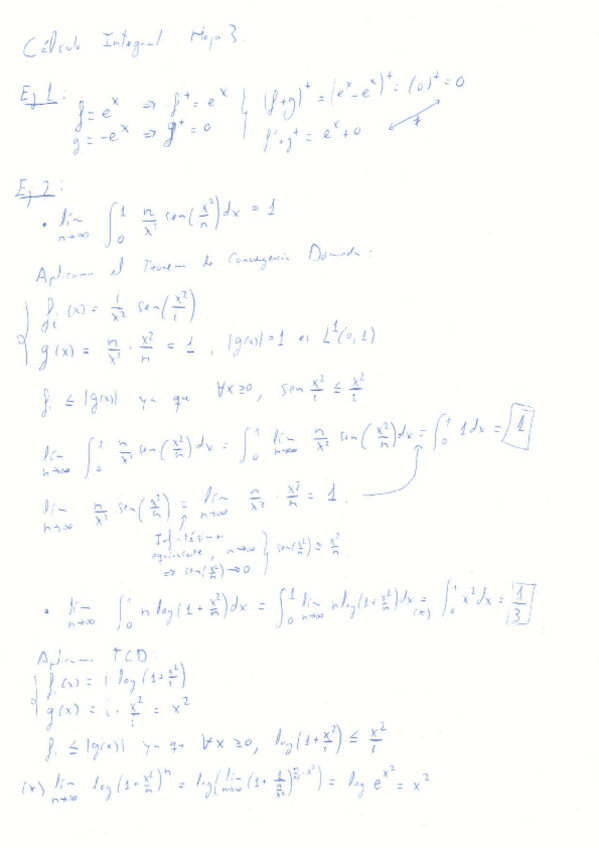 Cálculo Integral Hoja 3.
Ej 1: f = e^x ⇒ f^+ = e^x } (f+g)^+ = (e^x - e^x)^+ = (0)^+ = 0
g = -e^x ⇒ g^+ = 0 } f^+ + g^+ = e^x + 0 ≠
Ej 2:
• lim_{n→∞} ∫_0^1 n/x² sen(x²/n) dx = 1
Aplicamos el Teorema de Convergencia Dominada:
{ f_i(x) = i/x² sen(x²/i)
g(x) = n/x² · x²/n = 1, |g(x)| = 1 es L^1(0,1)
f_i ≤ |g(x)| ya que ∀x≥0, sen x²/i ≤ x²/i
lim_{n→∞} ∫_0^1 n/x² sen(x²/n) dx = ∫_0^1 lim_{n→∞} n/x² sen(x²/n) dx = ∫_0^1 1 dx = 1
lim_{n→∞} n/x² sen(x²/n) = lim_{n→∞} n/x² · x²/n = 1.
Infinitésimo
equivalente, n→∞ } sen(x²/n) ≈ x²/n
⇒ sen(x²/n) → 0
• lim_{n→∞} ∫_0^1 n log(1+x²/n) dx = ∫_0^1 lim_{n→∞} n log(1+x²/n) dx =(*) ∫_0^1 x² dx = 1/3
Aplicamos TCD:
{ f_i(x) = i log(1+x²/i)
g(x) = i · x²/i = x²
f_i ≤ |g(x)| ya que ∀x ≥0, log(1+x²/i) ≤ x²/i
(*) lim_{n→∞} log(1+x²/n)^n = log(lim_{n→∞} (1+1/(n/x²))^{n/x² · x²}) = log e^{x²} = x²